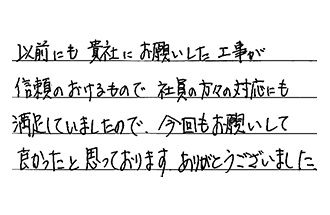 以前にも貴社にお願いした工事が
信頼のおけるもので 社員の方々の対応にも
満足していましたので、今回もお願いして
良かったと思っております。ありがとうございました。